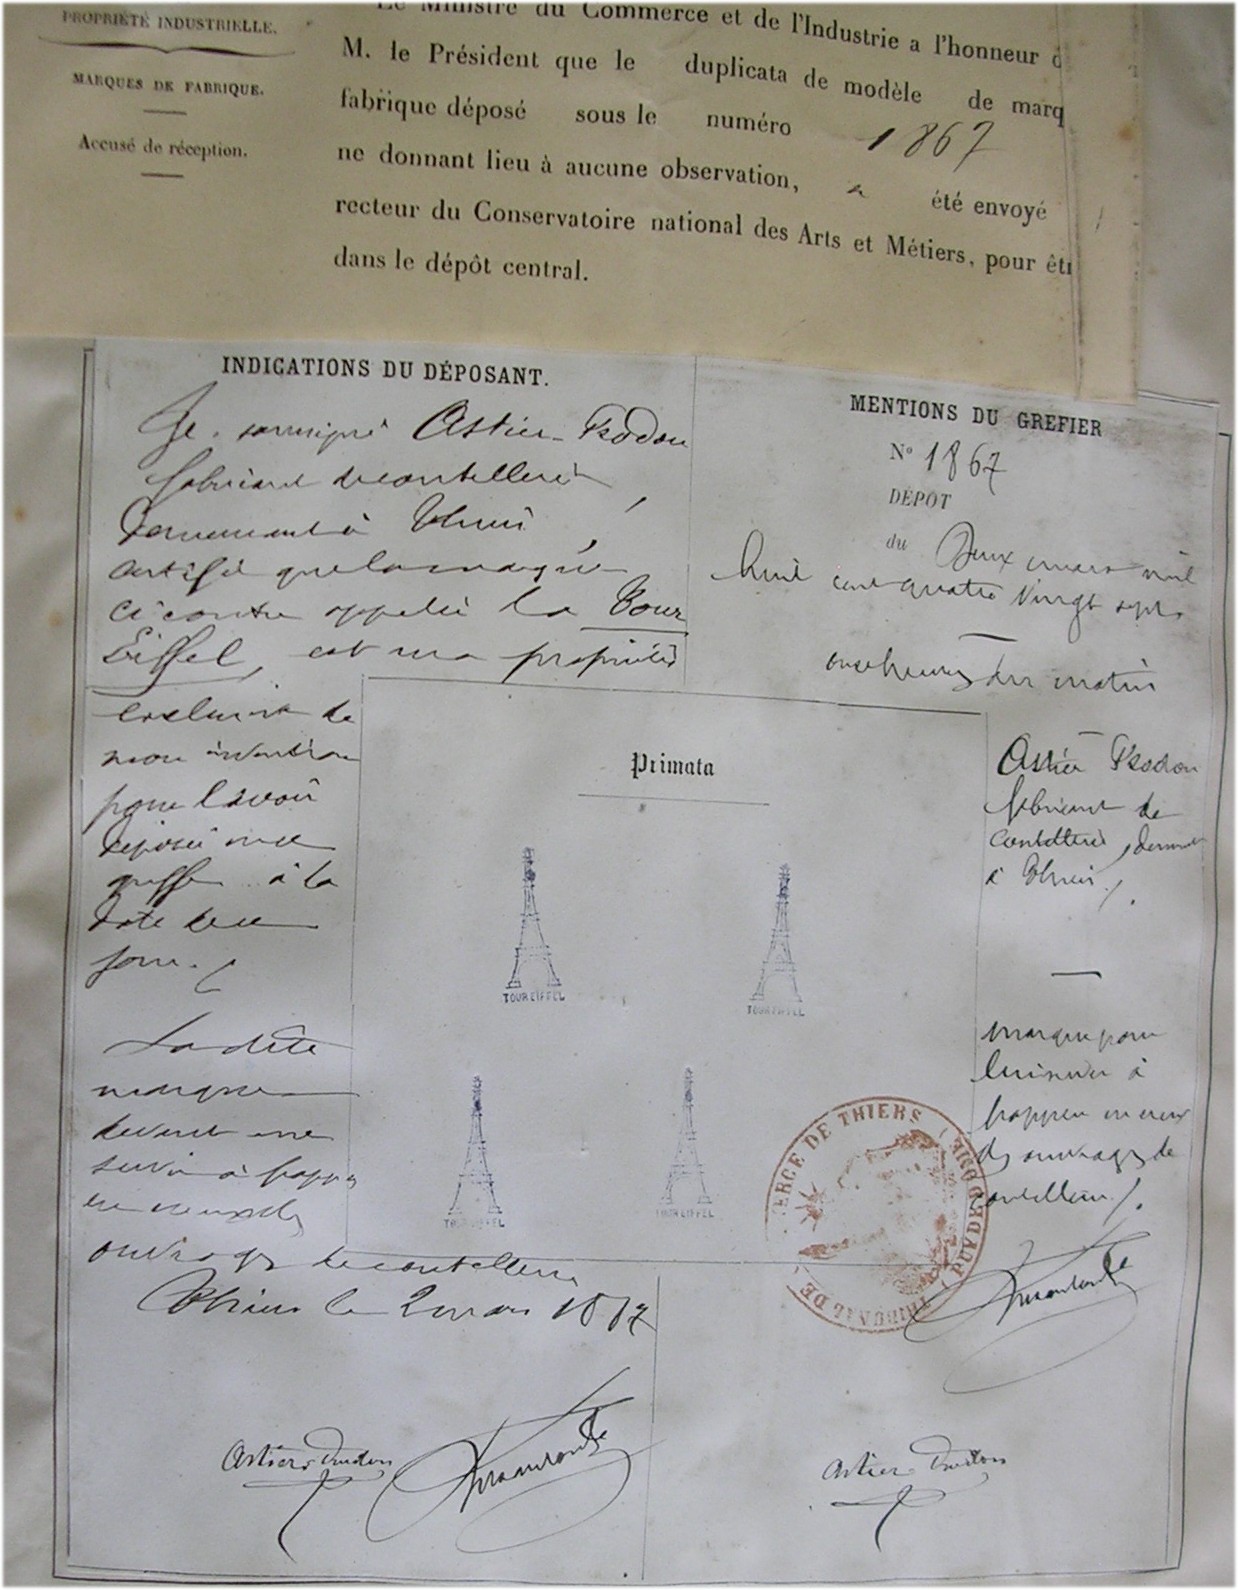 PROPRIÉTÉ INDUSTRIELLE.
MARQUES DE FABRIQUE.
Accusé de réception.
Le Ministre du Commerce et de l'Industrie a l'honneur
M. le Président que le duplicata de modèle de marq
fabrique déposé sous le numéro 1867
ne donnant lieu à aucune observation, a été envoyé
recteur du Conservatoire national des Arts et Métiers, pour êtr
dans le dépôt central.
INDICATIONS DU DÉPOSANT.
Je soussigné Astier-Prodon
fabricant de coutellerie,
demeurant à Thiers,
certifie que la marque
ci contre appelée la Tour
Eiffel, est ma propriété
exclusive de
mon invention
pour l'avoir
déposée au
greffe à la
date de ce
jour.
La dite
marque
devant me
servir à frapper
en creux des
ouvrages de coutellerie
Thiers le 2 mars 1887
Astier Prodon
MENTIONS DU GREFIER
N° 1867
DÉPÔT
du Deux mars mil
huit cent quatre vingt sept
onze heures du matin
Astier Prodon
fabricant de
coutellerie, demeurant
à Thiers.
marque pour
lui servir à
frapper en creux
des ouvrages de
coutellerie.
Astier Prodon
Primata
TOUR EIFFEL
TOUR EIFFEL
TOUR EIFFEL
TOUR EIFFEL
TRIBUNAL DE COMMERCE DE THIERS
PUY DE DOME